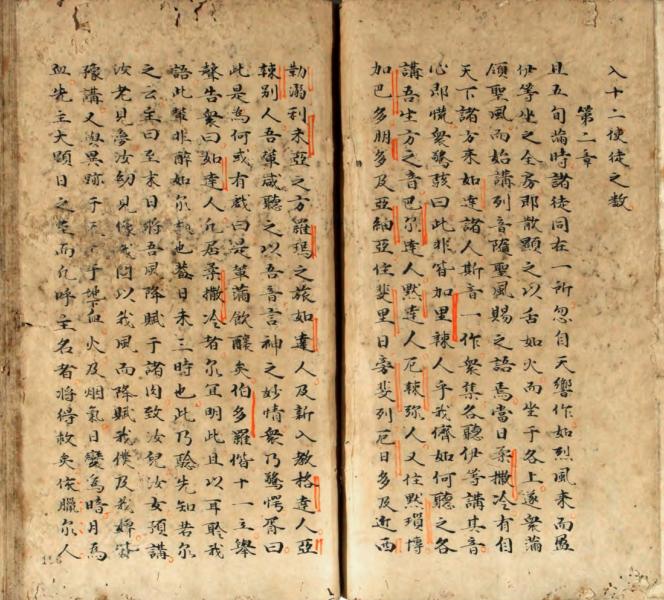 入十二使徒之数
第二章
且五旬菕時諸徒同在一所忽自天響作如烈風来而盈
伊等坐之全房即散顕之以舌如火而坐于各上遂衆蒲
領聖風而始講列音随聖風賜之語焉當日柔撒冷有自
天下諸方来如達諸人斯音一作衆集各聴伊等講其音
心即慌衆驚駭曰此非皆加里辣人乎我儕如何聴之各
講吾生方之音巴尓達人黙達人厄辣弥人又住黙瑣博
加巴多朋多及亞細亞住斐里日斐列厄日多及近西
勒溺利未亞之方羅瑪之旅如達人及新入教格達人亞
辣别人吾輩咸聴之以吾音言神之妙情衆乃驚愕胥曰
此是為何或有戯曰是輩蒲飲醲矣伯多羅偕十一立舉
聲告衆曰如達人凢居柔撒冷者尓冝明此且以耳聆我
語此輩非醉如尓也盖日未三時也此乃騐先知若尓
之云主曰至末日将吾風降賦于諸肉致汝兒汝女預講
汝老見夢汝幼見像我以我風而降賦我僕及我婢皆
豫講又與異跡于天于地血火及烟氣日變為暗月為
血先主大顕日之至而凢呼主名者将得救矣依臘尓人